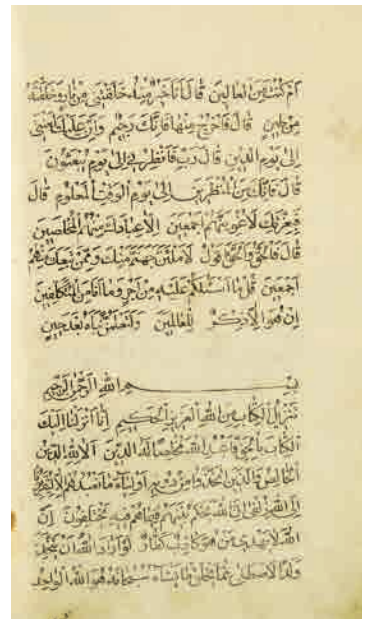 ام كنت من العالين قال انا خير منه خلقتني من نار وخلقته
من طين قال فاخرج منها فانك رجيم وان عليك لعنتي
الى يوم الدين قال رب فانظرني الى يوم يبعثون
قال فانك من المنظرين الى يوم الوقت المعلوم قال
فبعزتك لاغوينهم اجمعين الا عبادك منهم المخلصين
قال فالحق والحق اقول لاملئن جهنم منك وممن تبعك منهم
اجمعين قل ما اسئلكم عليه من اجر وما انا من المتكلفين
ان هو الا ذكر للعالمين ولتعلمن نباه بعد حين
بسم الله الرحمن الرحيم
تنزيل الكتاب من الله العزيز الحكيم انا انزلنا اليك
الكتاب بالحق فاعبد الله مخلصا له الدين الا لله الدين
الخالص والذين اتخذوا من دونه اولياء ما نعبدهم الا ليقربونا
الى الله زلفى ان الله يحكم بينهم فيما هم فيه يختلفون ان
الله لا يهدي من هو كاذب كفار لو اراد الله ان يتخذ
ولدا لاصطفى مما يخلق ما يشاء سبحانه هو الله الواحد